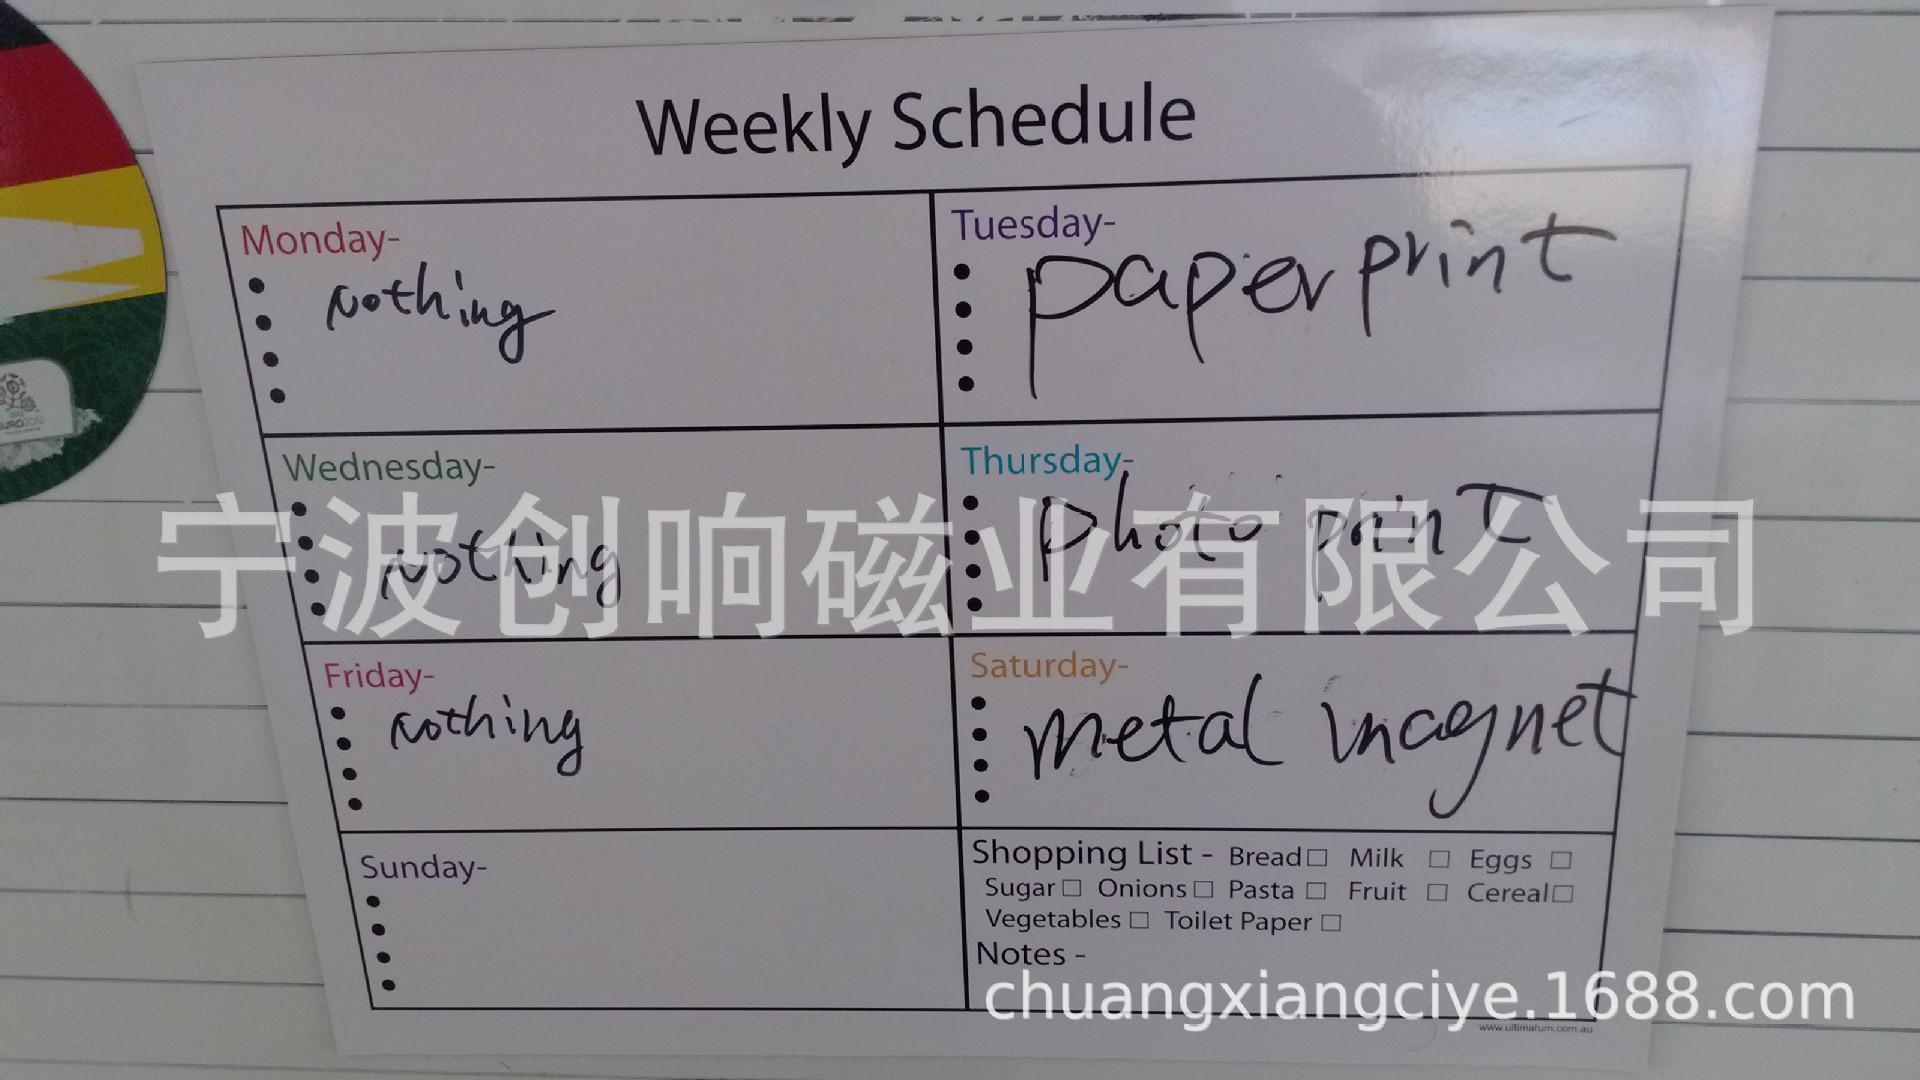 Weekly Schedule
Monday-
nothing
Tuesday-
paper print
Wednesday-
nothing
Thursday-
photo print
宁波创响磁业有限公司
Friday-
nothing
Saturday-
metal magnet
Sunday-
Shopping List - Bread□ Milk □ Eggs □
Sugar □ Onions □ Pasta □ Fruit □ Cereal□
Vegetables □ Toilet Paper □
Notes -
chuangxiangciye.1688.com
www.ultimatum.com.au